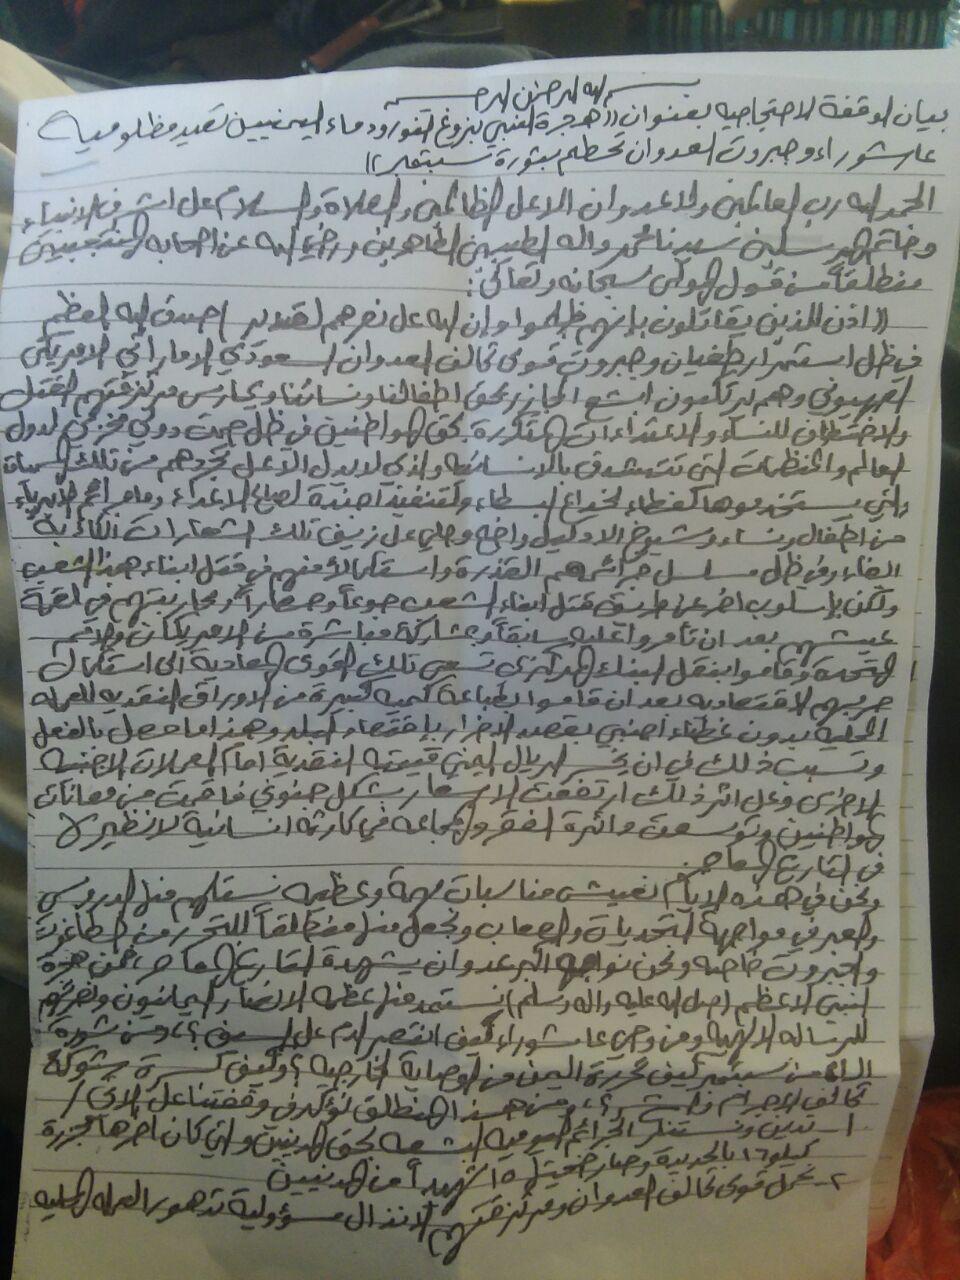 بسم الله الرحمن الرحيم
بيان الوقفة الاحتجاجيه بعنوان ((هجرة النبي بزوغ النور ودماء اليمنيين تعيد مظلومية
عاشوراء وجبروت العدوان تحطم بثورة سبتمبر))
الحمد لله رب العالمين ولا عدوان الا على الظالمين والصلاة والسلام على اشرف الانبياء
وخاتم المرسلين سيدنا محمد واله الطيبين الطاهرين ورضي الله عن اصحابه المنتجبين
منطلقاً من قول المولى سبحانه وتعالى:
((اذن للذين يقاتلون بانهم ظلموا وان الله على نصرهم لقدير) صدق الله العظيم
في ظل استمرار طغيان وجبروت قوى تحالف العدوان السعودي الاماراتي الامريكي
الصهيوني وهم يرتكبون ابشع المجازر بحق اطفالنا ونسائنا ويمارس مرتزقتهم القتل
والاختطاف للنساء والاعتداءات المتكررة بحق المواطنين في ظل صمت دولي مخزي لدول
العالم والمنظمات التي تتشدق بالانسانيه والذي لا يدل الا على تجردهم من تلك المسميات
والتي يستخدموها كغطاء لخداع البسطاء ولتنفيذ اجندة لصالح الاعداء وما جرائم الأبرياء
من اطفال ونساء وشيوخ الا دليل واضح وجلي على زيف تلك الشعارات الكاذبة
وفي ظل مسلسل جرائمهم القذرة واستكمالاً منهم في قتل ابناء هذا الشعب
ولكن بإسلوب اخر عن طريق قتل ابناء الشعب جوعاً وحصاراً ومحاربتهم في لقمة
عيشهم بعد ان تأمروا عليه سابقاً وبمشاركة مباشرة من الامريكان والامم
المتحدة وقاموا بنقل البنك المركزي تسعى تلك القوى المعادية الى استكمال
حربهم الاقتصاديه بعد ان قاموا بطباعة كميه كبيرة من الاوراق النقديه للعمله
المحلية بدون غطاء اجنبي بقصد الاضرار باقتصاد البلد وهذا ما حصل بالفعل
وتسبب ذلك في ان يخسر الريال اليمني قيمته النقدية امام العملات الاجنبيه
الاخرى وعلى اثر ذلك ارتفعت الاسعار بشكل جنوني فاقمت من معانات
المواطنين وتوسعت دائرة الفقر والمجاعه في كارثه انسانية لا نظير لها
في التاريخ المعاصر
ونحن في هذه الايام نعيش مناسبات مهمة وعظيمه نستلهم منها الدروس
والعبر في مواجهة التحديات والصعاب ونجعل منها منطلقاً للتحرر من الطاغوت
والجبروت خاصه ونحن نواجه اكبر عدوان يشهدة التاريخ المعاصر، فمن هجرة
النبي الاعظم (صلى الله عليه واله وسلم) نستمد منها عظمه الانصار اليمانيون ونصرتهم
للرساله الالهية ومن وحي عاشوراء كيف انتصر الدم على السيف؟، ومن ثورة
الـ من سبتمبر كيف تحررة اليمن من الوصاية الخارجيه؟ وكيف كسرة شوكة
تحالف الاجرام والشر؟، ومن هذا المنطلق نؤكد في وقفتنا على الاتي/
١- ندين ونستنكر الجرائم اليوميه البشعه بحق المدنيين والتي كان اخرها مجزرة
كيلو ١٦ بالحديدة وصار ضحيتها ١٥ شهيداً من المدنيين
٢- نحمل قوى تحالف العدوان ومرتزقتهم الانذال مسؤولية تدهور العمله المحليه